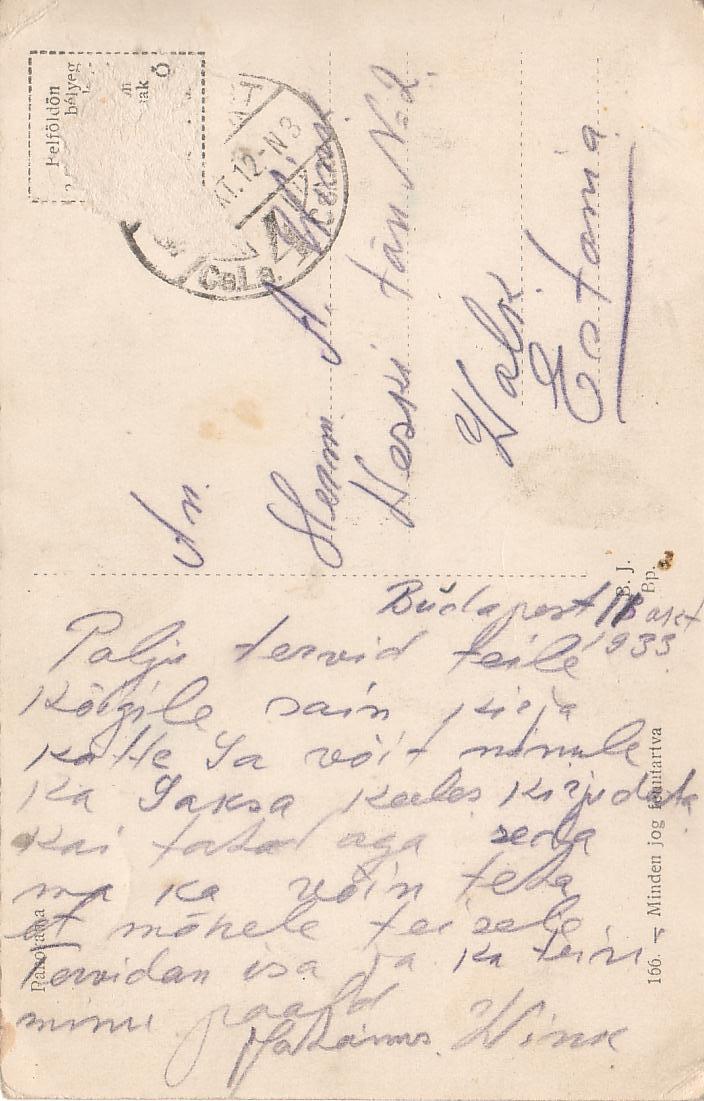 Felföldön
bélyeg
ak
XI.12-N 8
An.
Herrn A.
Keski tän N 2.
Walk
Estonia
B. J.
Bp.
Budapest 1933
Palju tervid teile
Kõigile sain kirja
Katte Sa võit minule
Ka Saksa keeles kirjudata
Kai tahad aga seda
ma ka võin teha
et mõnele teisele
Tervidan isa ja ka teisi
minu poolt
Wink
Panorama
166. — Minden jog fenntartva